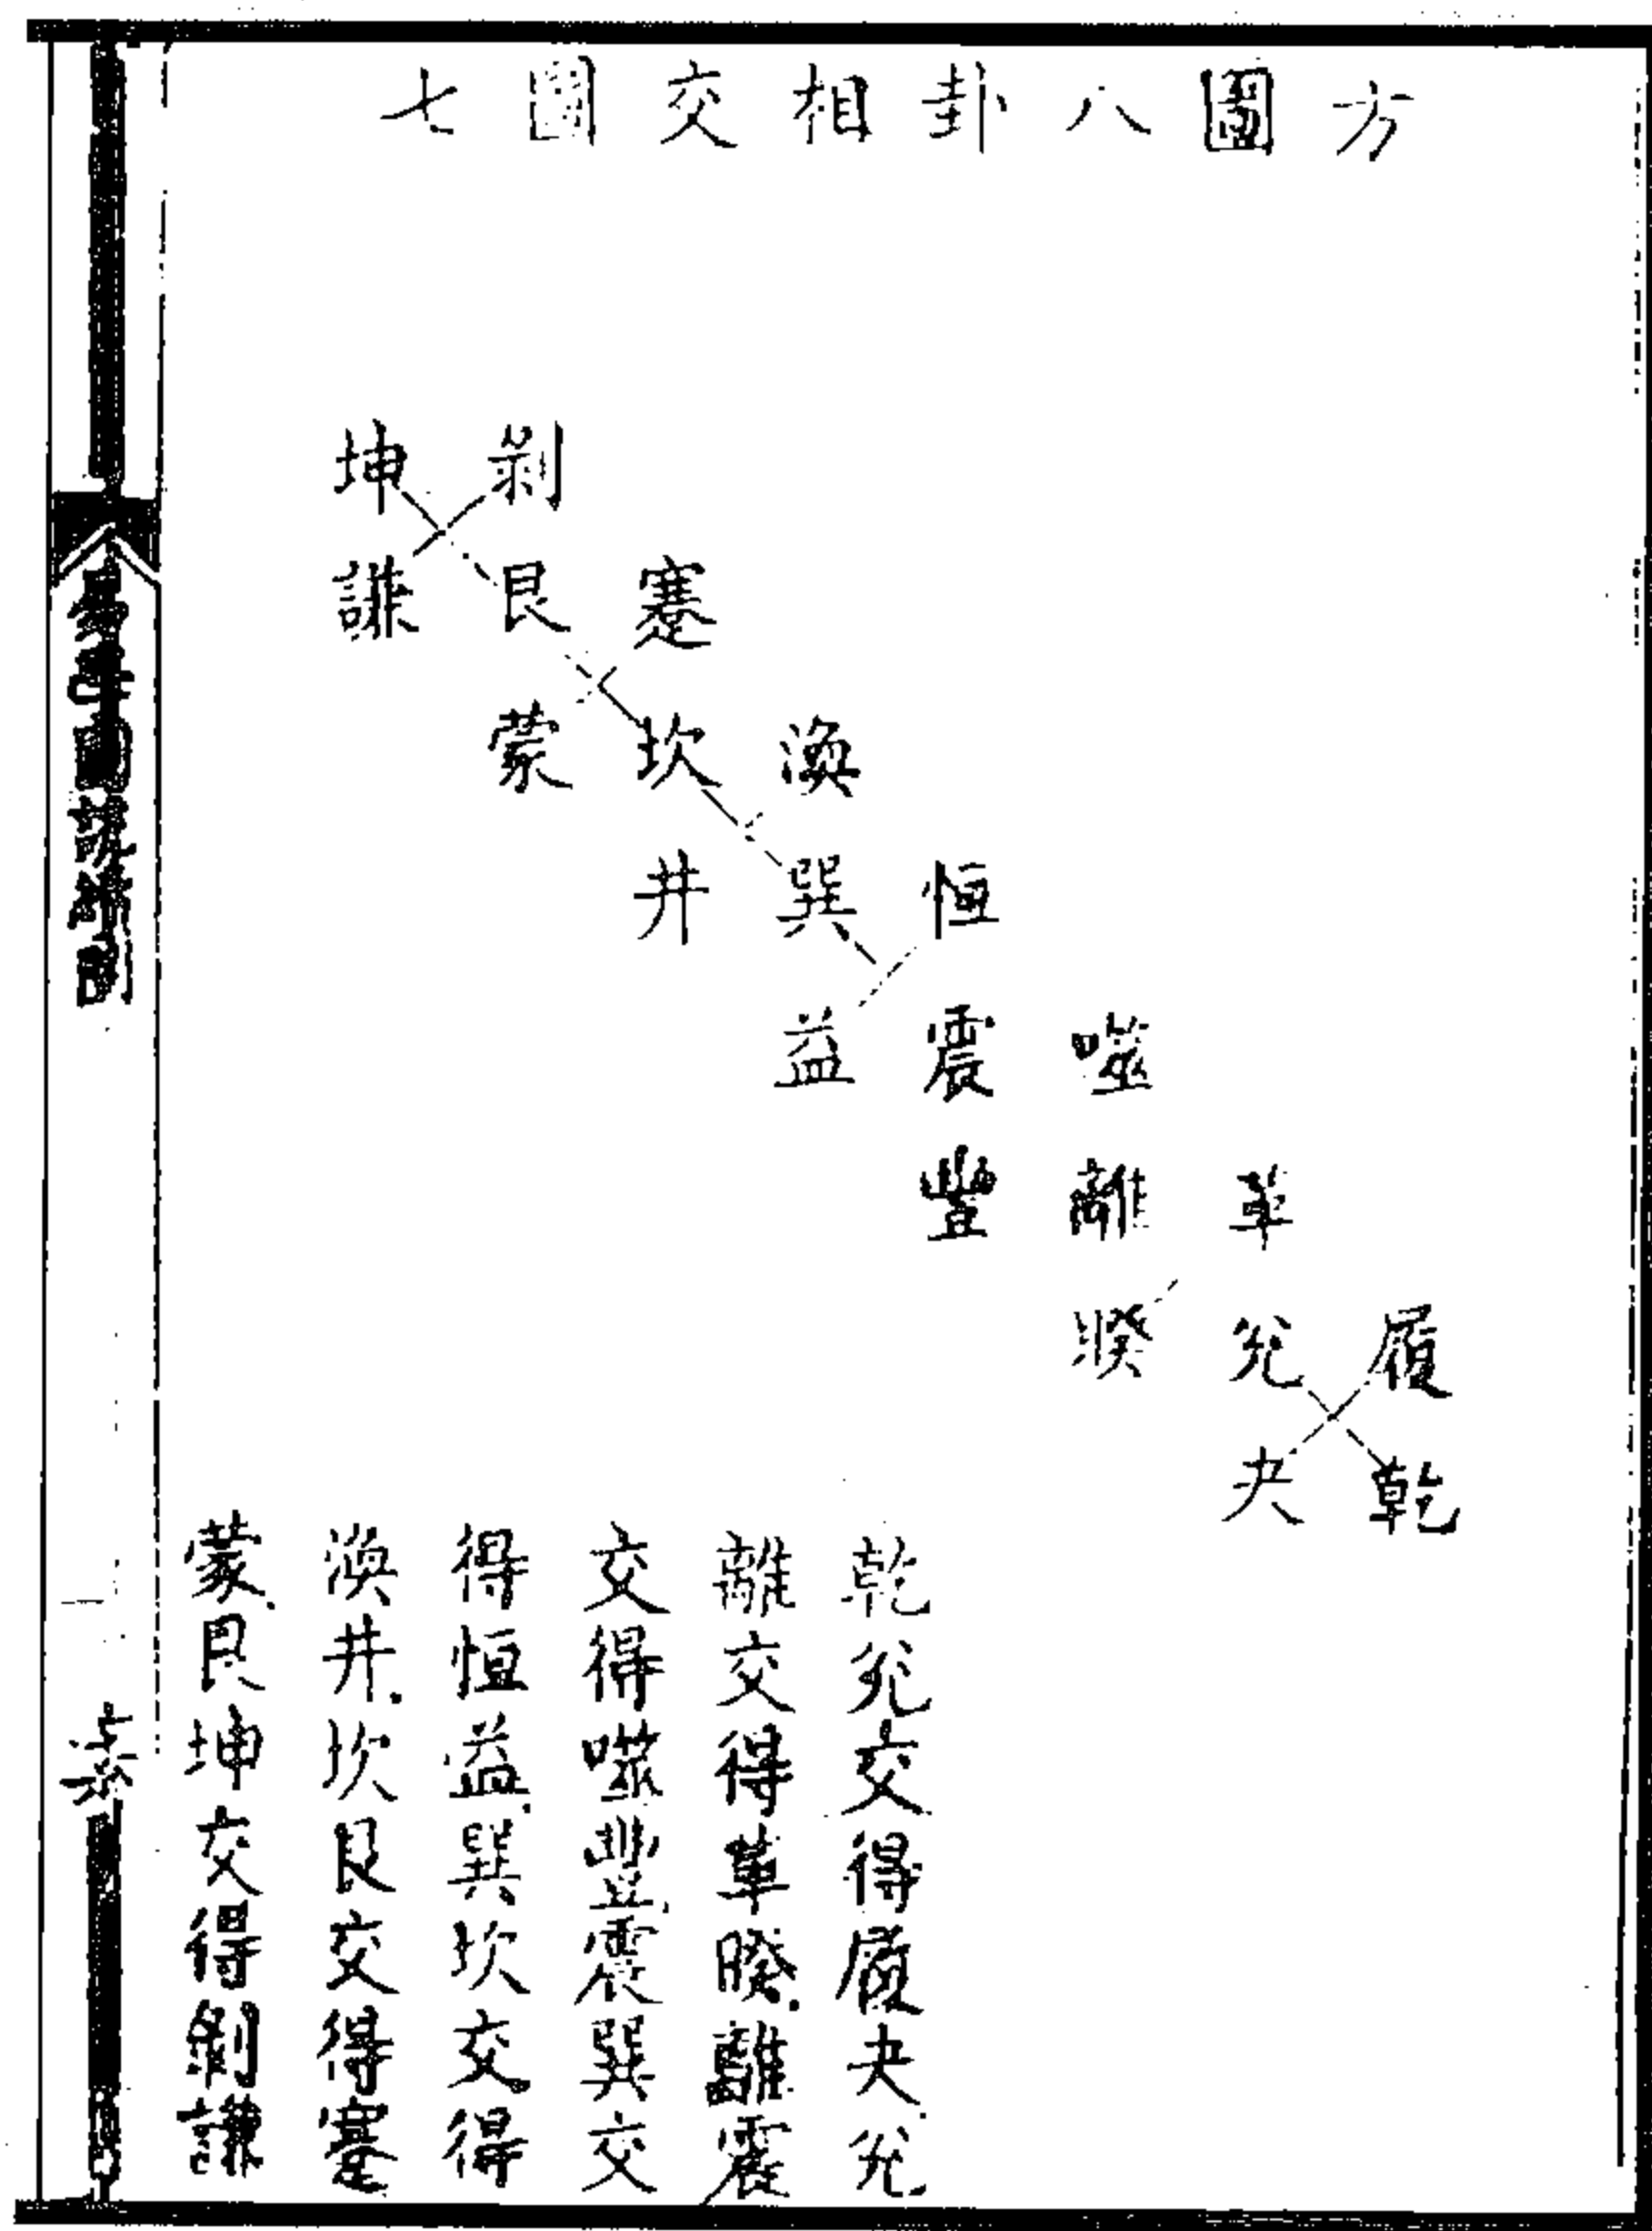 方圖八卦相交圖七
坤 剝
謙 艮 蹇
蒙 坎 渙
井 巽 恒
益 震 噬
豐 離 革
睽 兊 履
夬 乾
乾兊交得履夬兊
離交得革睽離震
交得噬豐震巽交
得恒益巽坎交得
渙井坎艮交得蹇
蒙艮坤交得剝謙